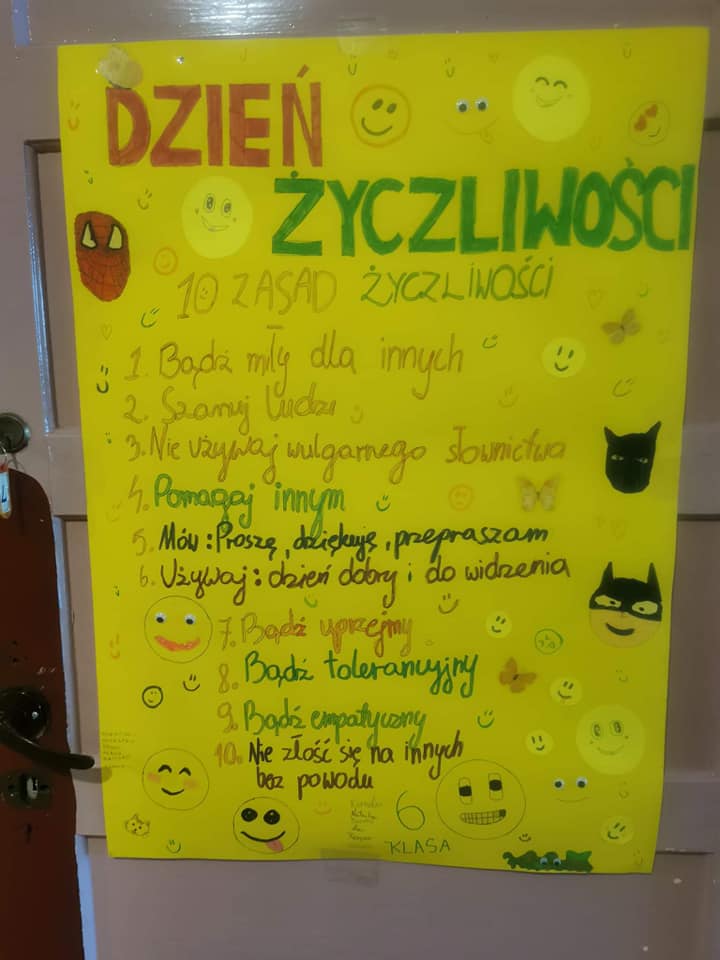 DZIEŃ
ŻYCZLIWOŚCI
10 ZASAD ŻYCZLIWOŚCI
1. Bądź miły dla innych
2. Szanuj ludzi
3. Nie używaj wulgarnego słownictwa
4. Pomagaj innym
5. Mów: Proszę, dziękuję, przepraszam
6. Używaj: dzień dobry i do widzenia
7. Bądź uprzejmy
8. Bądź tolerancyjny
9. Bądź empatyczny
10. Nie złość się na innych
bez powodu
6
KLASA